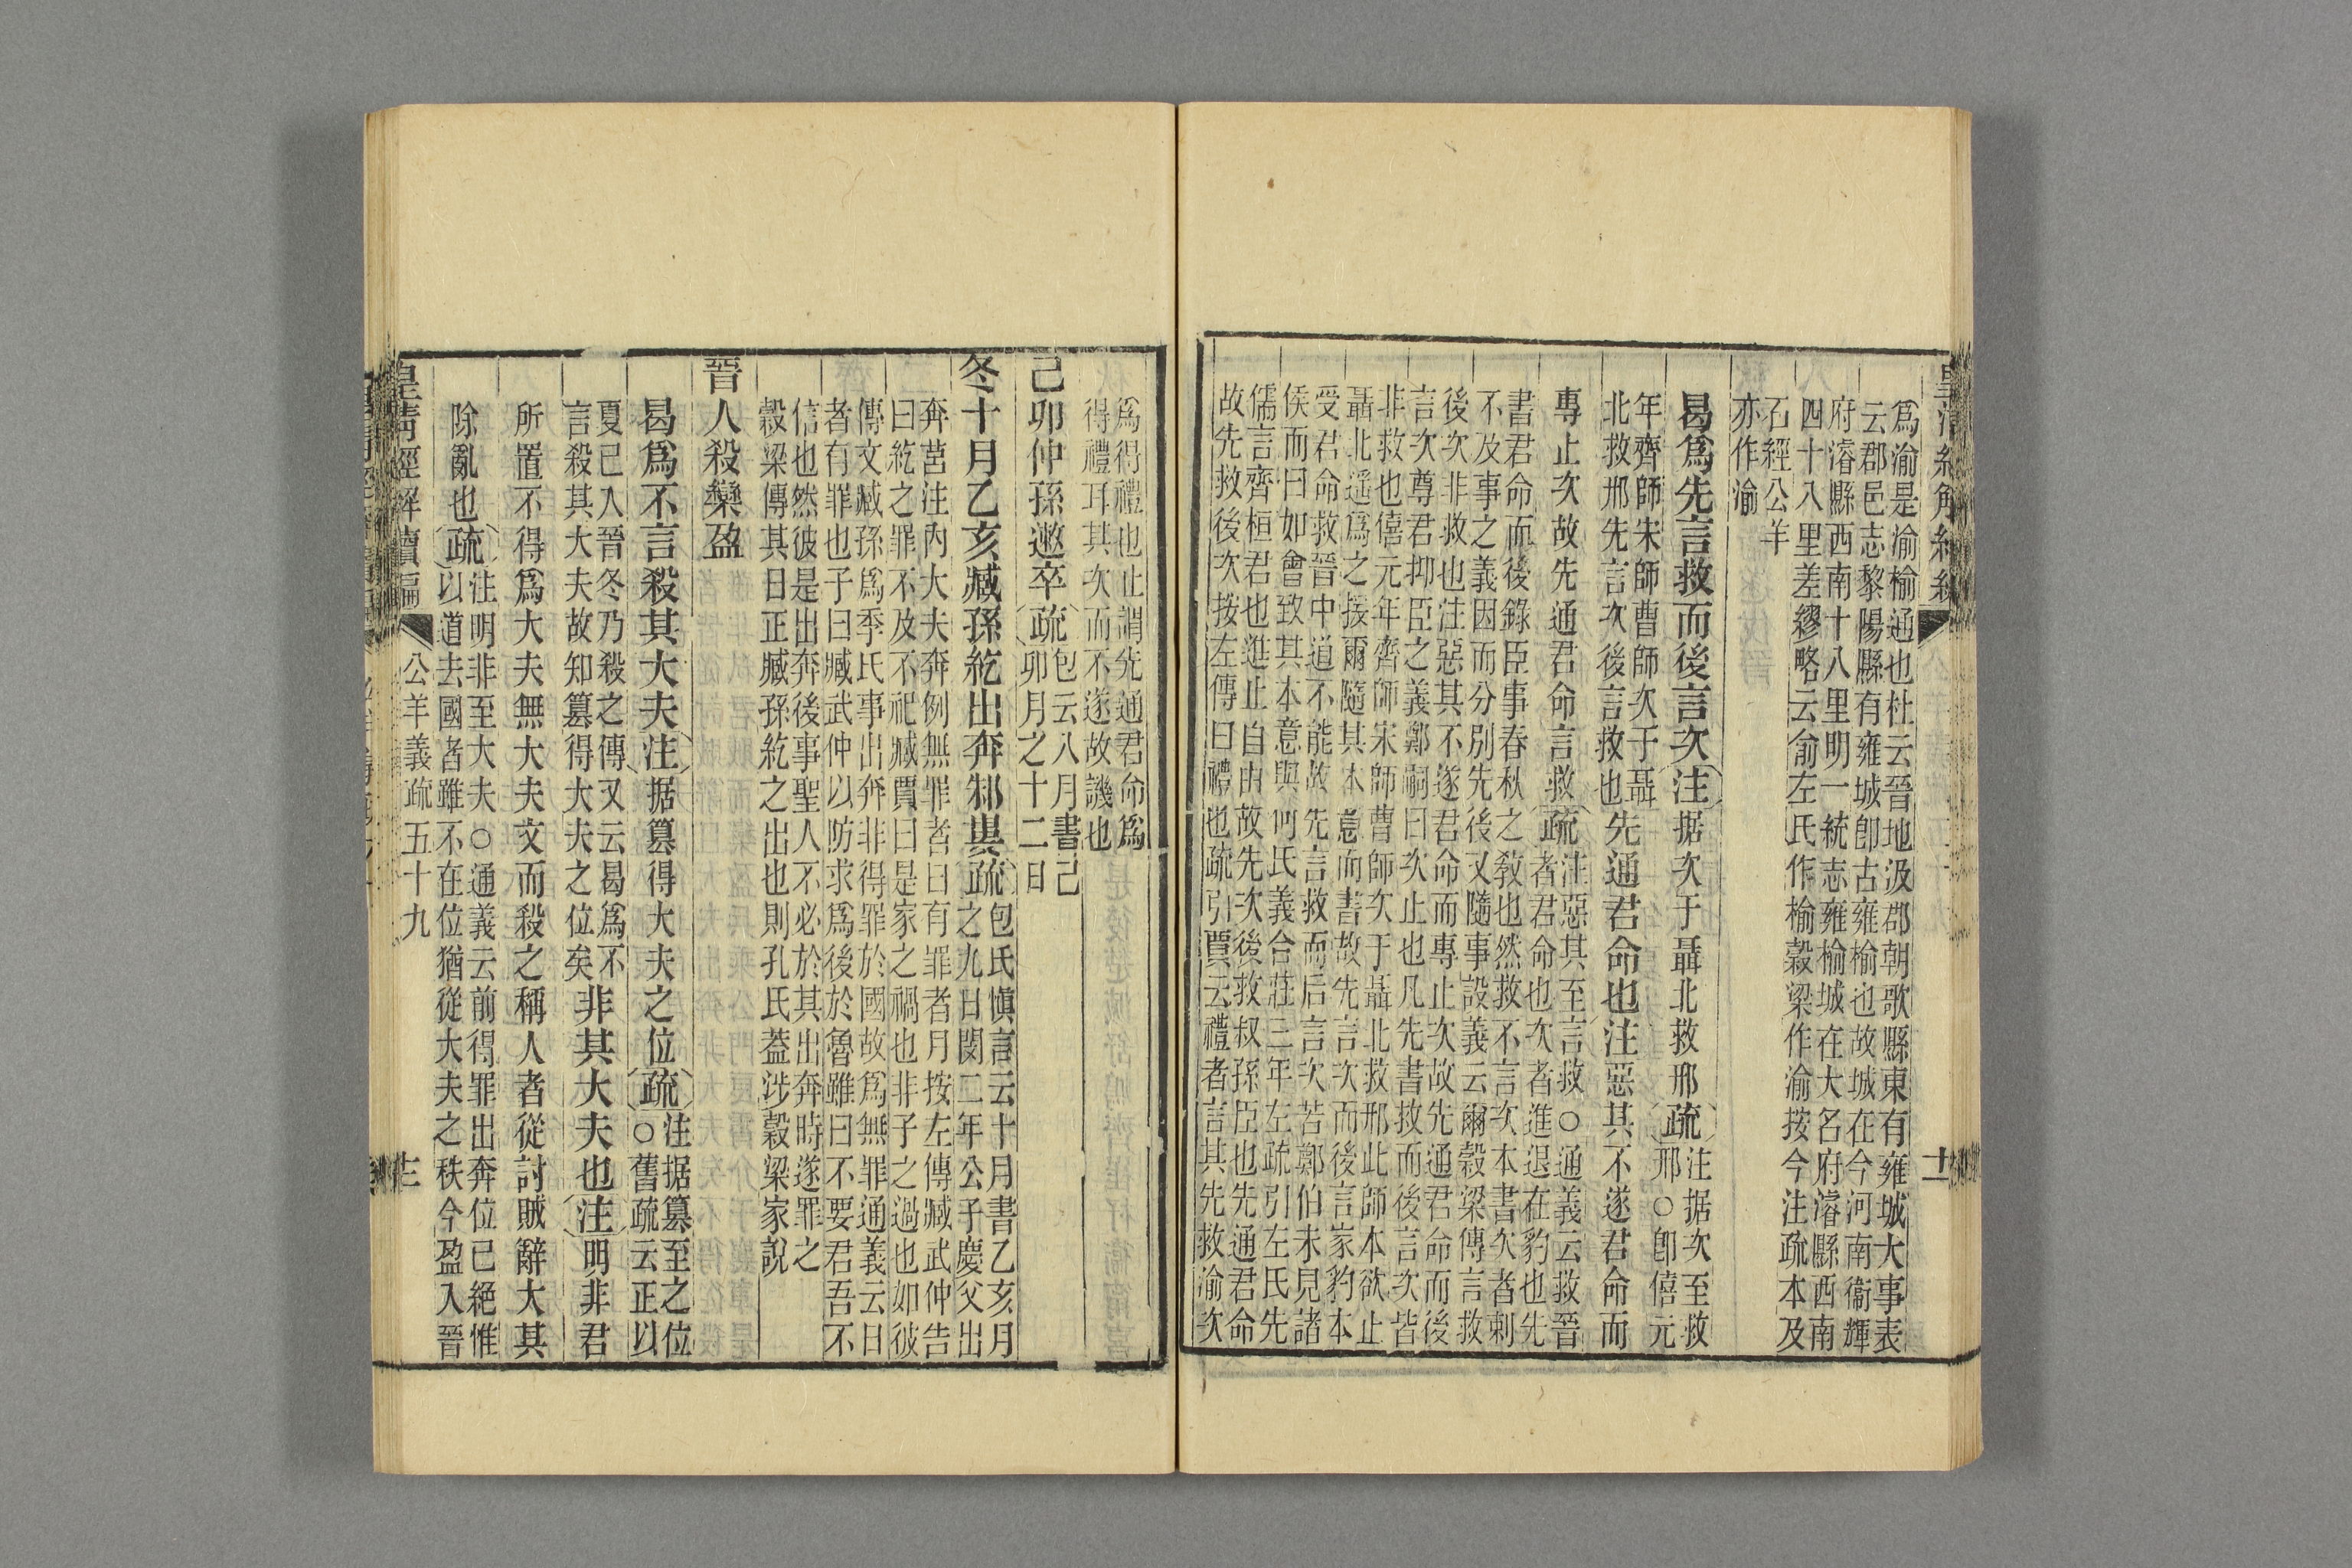 爲渝是渝榆通也杜云晉地汲郡朝歌縣東有雍城大事表
云郡邑志黎陽縣有雍城卽古雍榆也故城在今河南衞輝
府濬縣西南十八里明一統志雍榆城在大名府濬縣西南
四十八里差繆略云俞左氏作榆穀梁作渝按今注疏本及
石經公羊
亦作渝
曷爲先言救而後言次注据次于聶北救邢疏注据次至救
邢○卽僖元
年齊師宋師曹師次于聶
北救邢先言次後言救也先通君命也注惡其不遂君命而
專止次故先通君命言救疏注惡其至言救○通義云救晉
者君命也次者進退在豹也先
書君命而後錄臣事春秋之敎也然救不言次本書次者剌
不及事之義因而分別先後又隨事設義云爾穀梁傳言救
後次非救也注惡其不遂君命而專止次故先通君命而後
言次尊君抑臣之義鄭嗣曰次止也凡先書救而後言次皆
非救也僖元年齊師宋師曹師次于聶北救邢此師本欲止
聶北遥爲之援爾隨其本意而書故先言次而後言家豹本
受君命救晉中道不能故先言救而后言次若鄭伯未見諸
侯而曰如會致其本意與何氏義合莊三年左疏引左氏先
儒言齊桓君也進止自由故先次後救叔孫臣也先通君命
故先救後次按左傳曰禮也疏引賈云禮者言其先救渝次
十
爲得禮也止謂先通君命爲
得禮耳其次而不遂故譏也
己卯仲孫遬卒疏包云八月書己
卯月之十二日
冬十月乙亥臧孫紇出奔邾婁疏包氏愼言云十月書乙亥月
之九日閔二年公子慶父出
奔莒注內大夫奔例無罪者日有罪者月按左傳臧武仲告
曰紇之罪不及不祀臧賈曰是家之禍也非子之過也如彼
傳文臧孫爲季氏事出奔非得罪於國故爲無罪通義云日
者有罪也子曰臧武仲以防求爲後於魯雖曰不要君吾不
信也然彼是出奔後事聖人不必於其出奔時遂罪之
穀梁傳其日正臧孫紇之出也則孔氏葢涉穀梁家說
晉人殺欒盈
曷爲不言殺其大夫注据簒得大夫之位疏注据簒至之位
○舊疏云正以
夏已入晉冬乃殺之傳又云曷爲不
言殺其大夫故知簒得大夫之位矣非其大夫也注明非君
所置不得爲大夫無大夫文而殺之稱人者從討賊辭大其
除亂也疏注明非至大夫○通義云前得罪出奔位已絕惟
以道去國者雖不在位猶從大夫之秩今盈入晉
皇淸經解續編 公羊義疏五十九